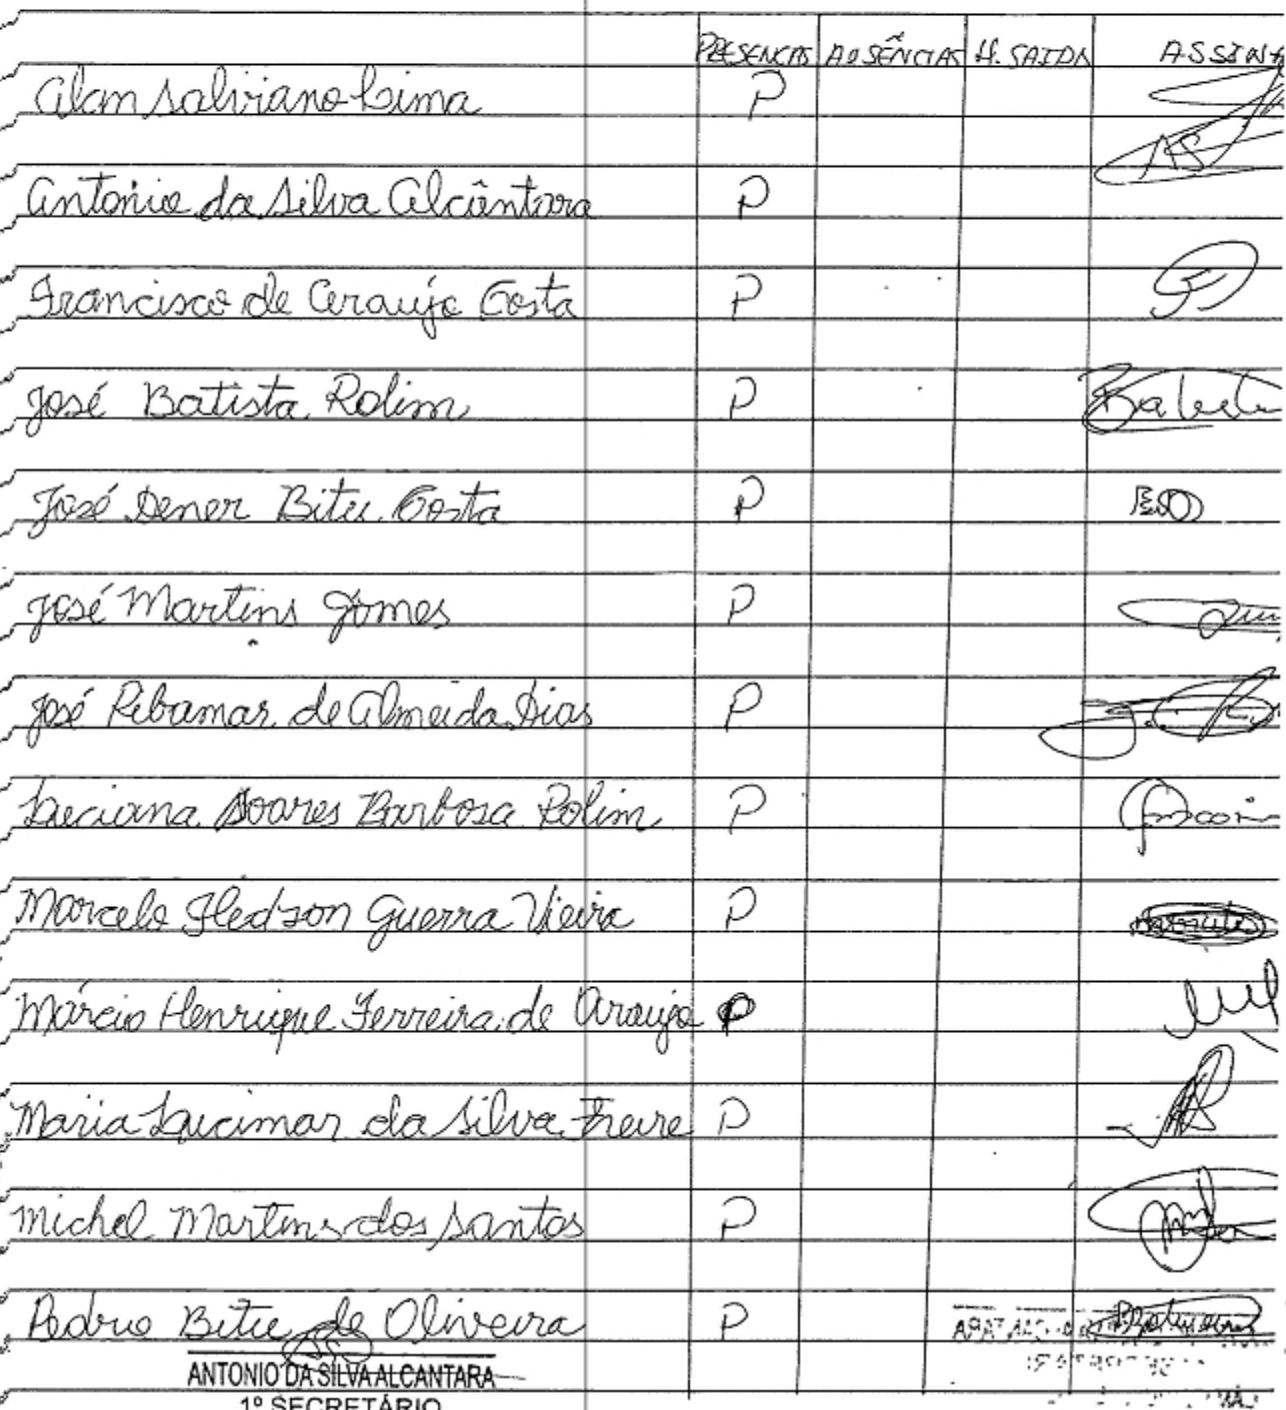 PRESENCAS AUSÊNCIAS H. SAIDA ASSINA
Alan Salviano Lima P
AS
Antonio da Silva Alcântara P
Francisco de Araujo Costa P
José Batista Rolim P Batista
José Dener Bitu Costa P
José Martins Gomes P
José Ribamar de Almeida Dias P
Luciana Soares Barbosa Rolim P
Marcelo Fledson Guerra Vieira P
Márcio Henrique Ferreira de Araujo P
Maria Lucimar da Silva Freire P
Michel Martins dos Santos P
Pedro Bitu de Oliveira P
AS
ANTONIO DA SILVA ALCANTARA
1º SECRETÁRIO